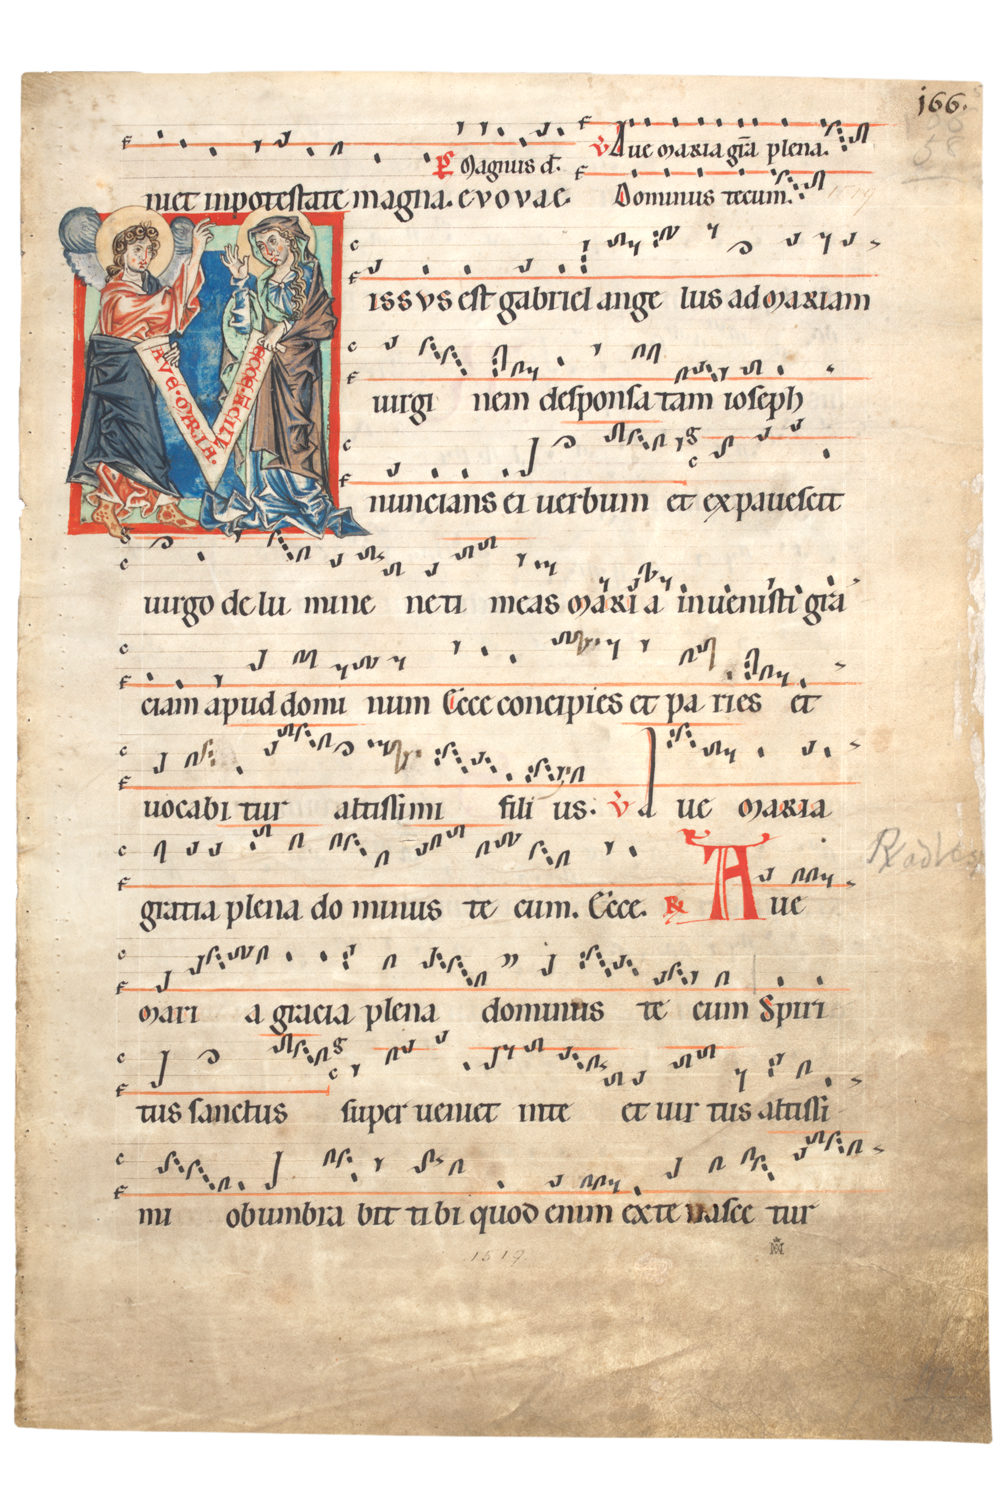 166.
P̄ Magnus d̄. v̇ Aue maria gr̄a plena.
niet inpotestate magna. evovae. Dominus tecum.
AVE. MARIA. ECCE. ACILL
issvs est gabriel ange lus ad mariam
uirgi nem desponsa tam ioseph
nuncians ei uerbum et expauescit
uirgo de lu mine ne ti meas maria inuenisti gra
ciam apud domi num Ecce concipies et pa ries et
uocabi tur altissimi fili us. v̇ A ue maria
gratia plena do minus te cum. Ecce. R Aue
mari a gracia plena dominus te cum Spiri
tus sanctus super ueniet inte et uir tus altissi
mi obumbra bit ti bi quod enim exte nasce tur
1519.